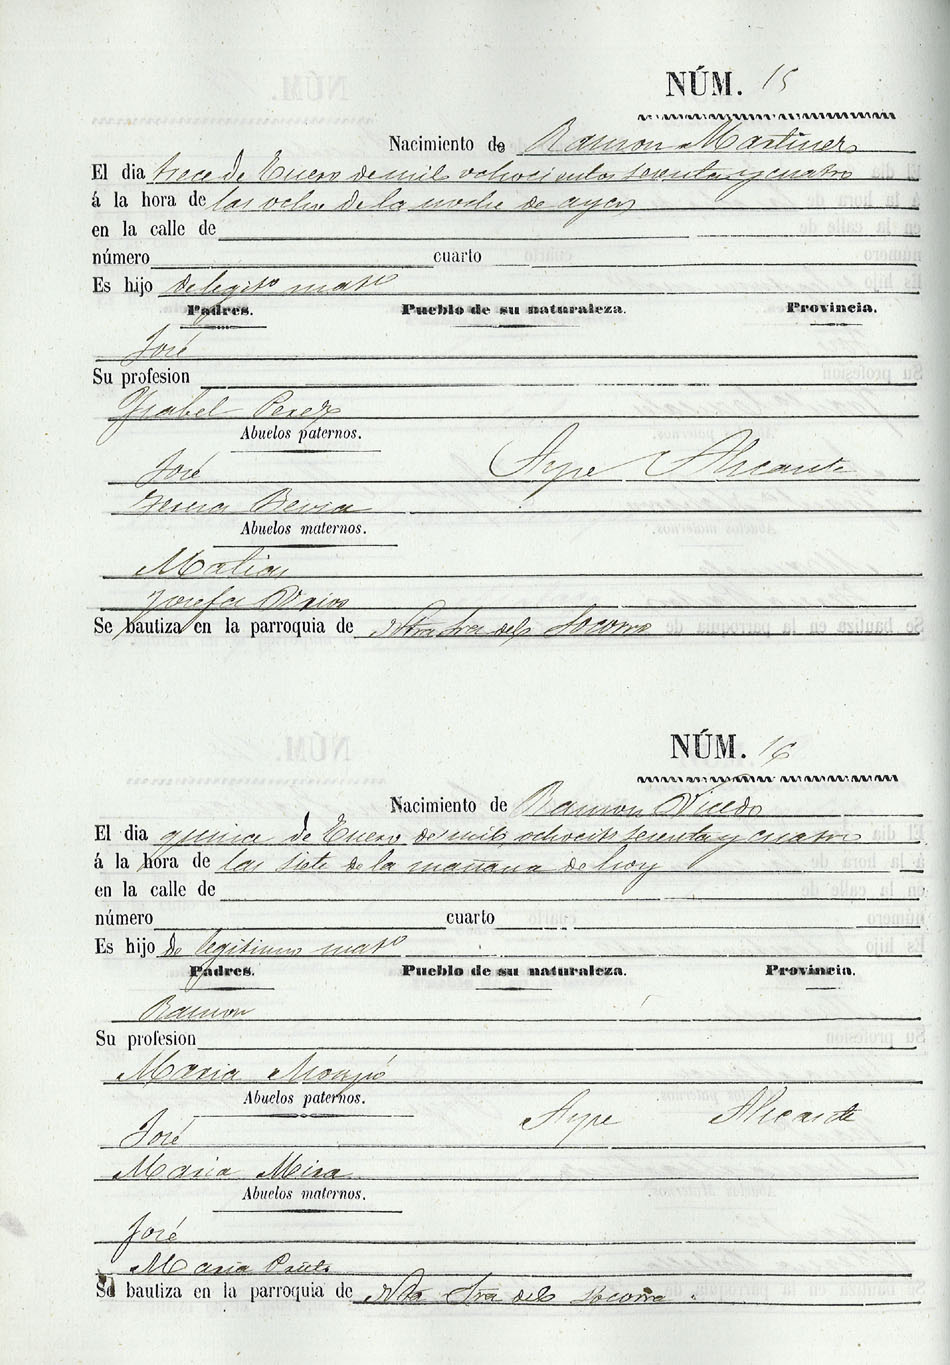 NÚM. 15
Nacimiento de Ramon Martinez
El dia trece de Enero de mil ochocientos setenta y cuatro
á la hora de las ocho de la noche de ayer
en la calle de
número cuarto
Es hijo de legito. mato.
Padres. Pueblo de su naturaleza. Provincia.
José
Su profesion
Ysabel Perez
Abuelos paternos.
José Aspe Alicante
Teresa Bevia
Abuelos maternos.
Matias
Josefa
Se bautiza en la parroquia de Ntra Sra del Socorro
NÚM. 16
Nacimiento de Ramon Vicedo
El dia quince de Enero de mil ochocits. setenta y cuatro
á la hora de las siete de la mañana de hoy
en la calle de
número cuarto
Es hijo de legitimo mato.
Padres. Pueblo de su naturaleza. Provincia.
Ramon
Su profesion
Maria
Abuelos paternos.
José Aspe Alicante
Maria Mira
Abuelos maternos.
José
Maria
Se bautiza en la parroquia de Ntra Sra del Socorro